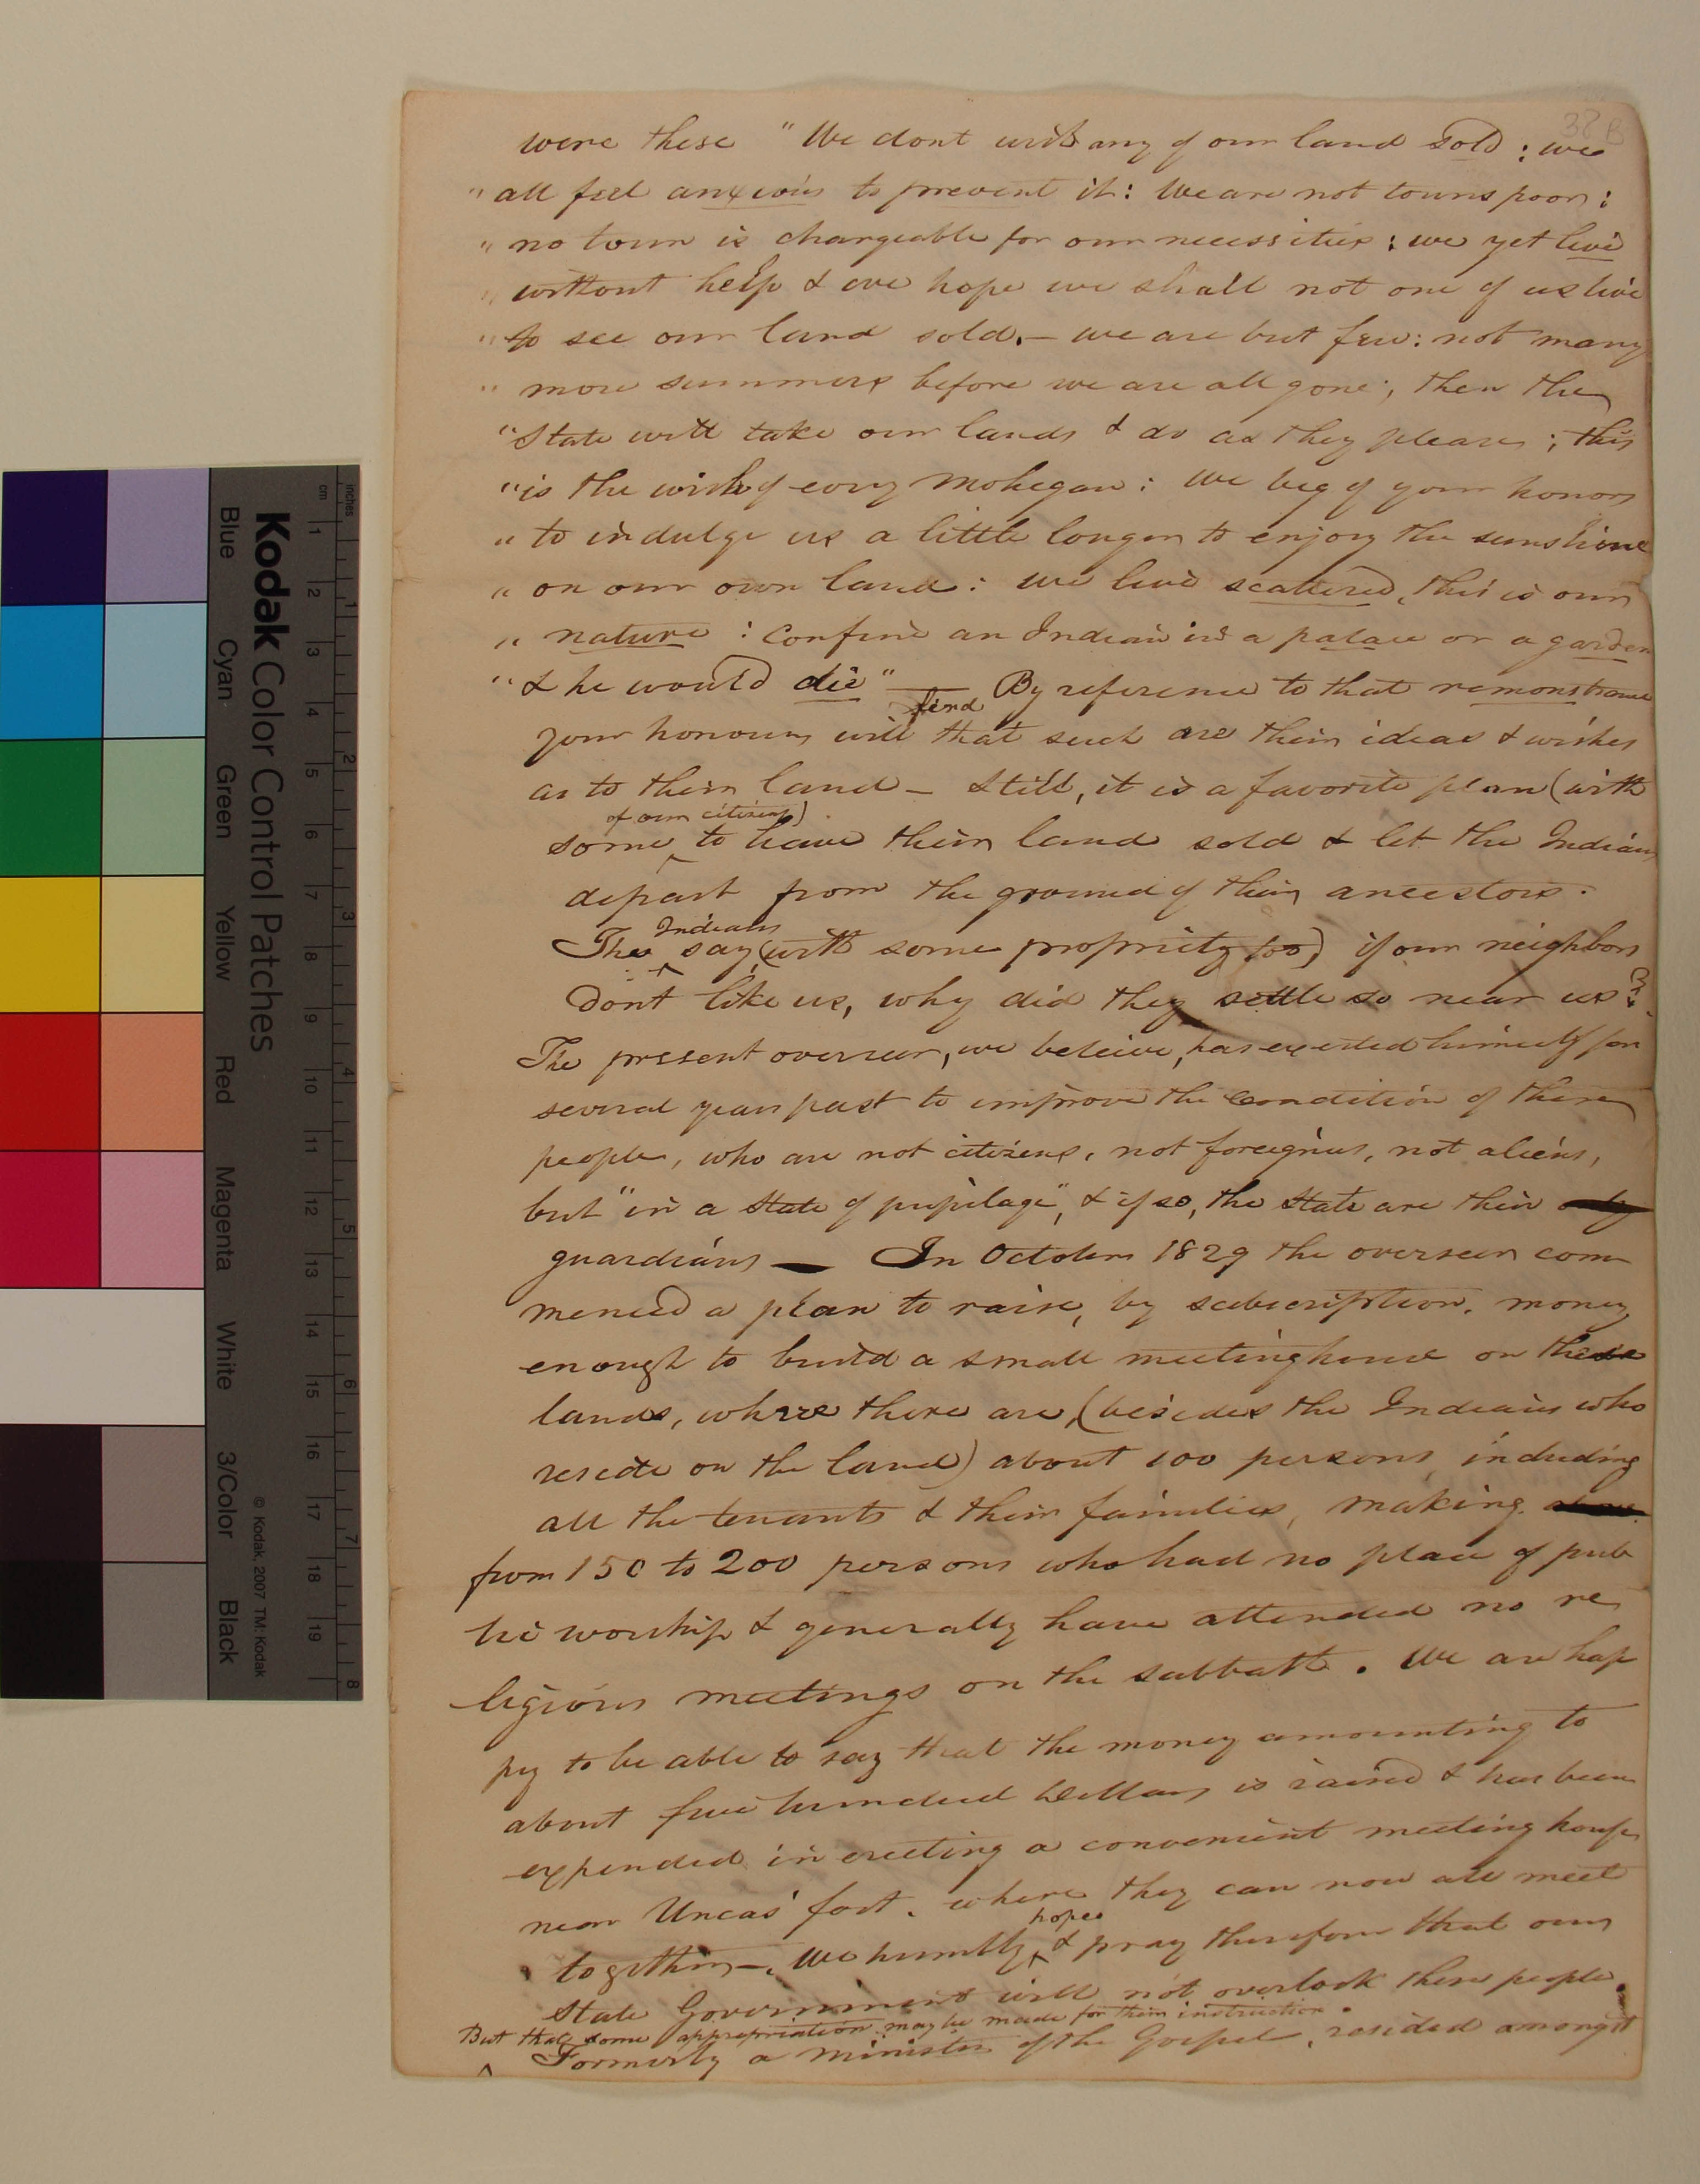 38 B
were these "We dont wish any of our land sold : we
" all feel anxious to prevent it: We are not towns poor :
" no town is chargeable for our necessities : we yet live
" without help & we hope we shall not one of us live
" to see our land sold. — we are but few: not many
" more summers before we are all gone ; then the
" State will take our lands & do as they please ; this
" is the wish of every Mohegan : We beg of your honors
" to indulge us a little longer to enjoy the sunshine
" on our own land : we live scattered, this is our
" nature : Confine an Indian in a palace or a garden
" & he would die " — By reference to that remonstrance
find
your honours will that such are their ideas & wishes
as to their land — Still, it is a favorite plan (with
of our citizens)
some to have their land sold & let the Indians
depart from the ground of their ancestors.
Indians
The say (with some propriety too) if our neighbors
dont like us, why did they settle so near us?
The present overseer, we beleive, has exerted himself for
several years past to improve the condition of these
people, who are not citizens, not foreigners, not aliens,
but "in a State of pupilage", & if so, the State are their
guardians — In October 1829 the overseer com
menced a plan to raise, by subscription, money
enough to build a small meetinghouse on these
lands, where there are, (besides the Indians who
reside on the land) about 100 persons, including
all the tenants & their families, making
from 150 to 200 persons who had no place of pub
lic worship & generally have attended no re
ligious meetings on the sabbath. We are hap
py to be able to say that the money amounting to
about five hundred Dollars is raised & has been
expended in erecting a convenient meeting house
near Uncas' fort. where they can now all meet
hope
together —. We humbly & pray therefore that our
State Government will not overlook these people.
But that some appropriation may be made for their instruction.
Formerly a minister of the Gospel, resided amongst
inches
cm
1 2 3 4 5 6 7 8 9 10 11 12 13 14 15 16 17 18 19
1 2 3 4 5 6 7 8
Kodak Color Control Patches
Blue Cyan Green Yellow Red Magenta White 3/Color Black
© Kodak, 2007 TM: Kodak